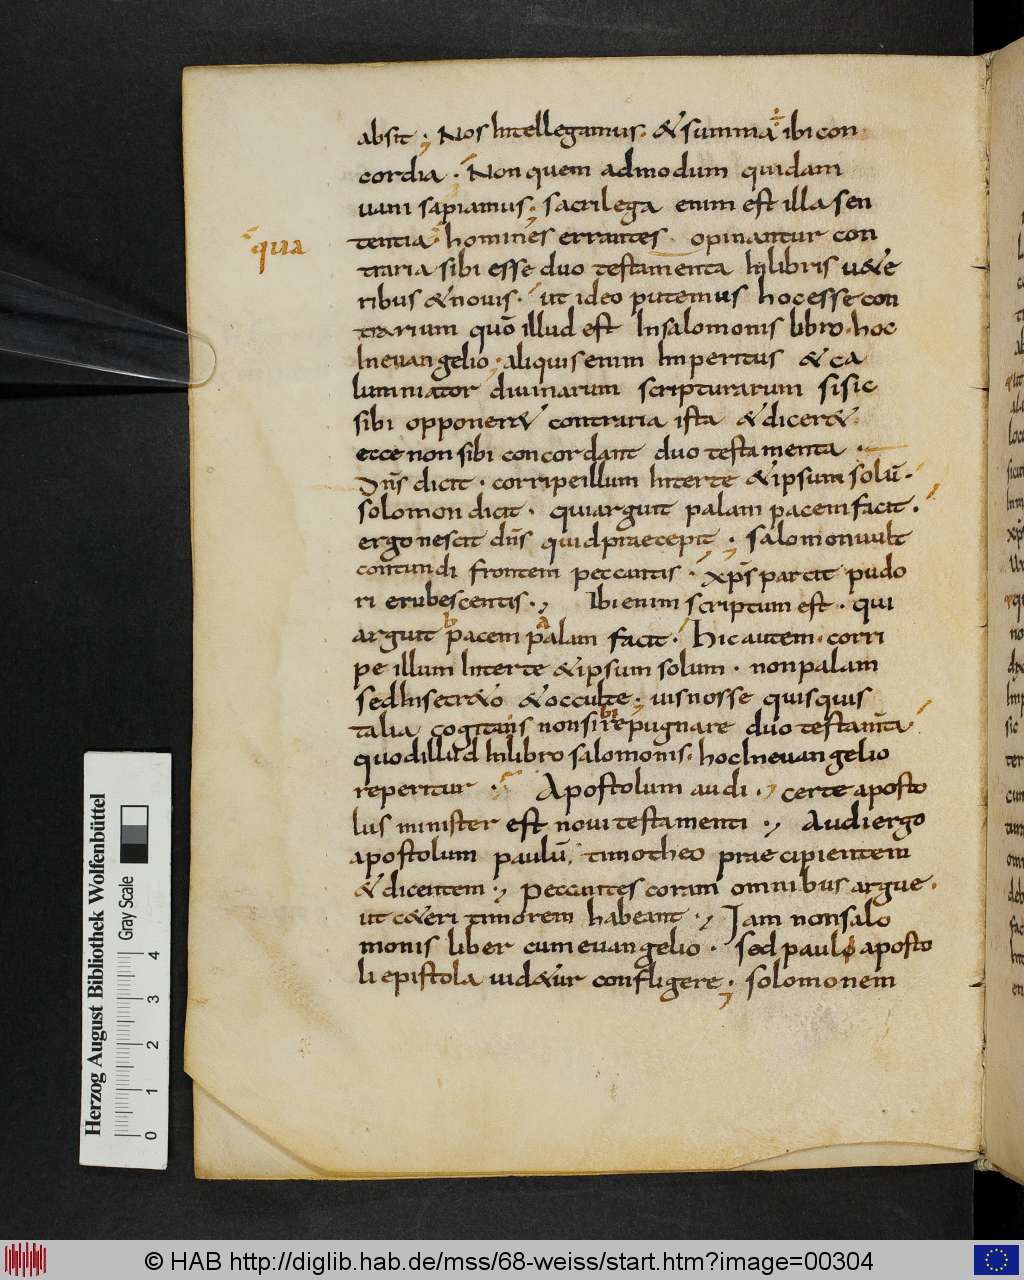 absit ; Nos Intellegamus . & summa ÷ ibi con
cordia . Non quem admodum quidam
uani sapiamus . sacrilega enim est illa sen
qua
tentia homines errantes . opinantur con
traria sibi esse duo testamenta Inlibris u&e
ribus & nouis . ut ideo putemus hoc esse con
trarium quō illud est Insalomonis libro . hoc
Ineuangelio ; aliquis enim Imperitus & ca
lumniator diuinarum scripturarum si sic
sibi opponer& contraria ista & dicer& .
ecce non sibi concordant duo testamenta .
Dn̄s dicit . corripe illum Inter te & ipsum solū .
solomon dicit . qui arguit palam pacem facit .
ergo nescit dn̄s quid praecepit . salomon uult
contundi frontem peccantis . xp̄s parcit pudo
ri erubescentis . , Ibi enim scriptum est . qui
arguit b pacem a palam facit . hic autem . corri
pe illum Inter te & ipsum solum . non palam
sed Insecr&o & occulte ; uis nosse quisquis
talia cogitans non sibi repugnare duo testam̄ta
quod illud Inlibro salomonis . hoc Ineuangelio
reperitur . Apostolum audi . , certe aposto
lus minister est noui testamenti . , Audi ergo
apostolum paulū , timotheo praecipientem
& dicentem . , peccantes coram omnibus argue .
ut c&eri timorem habeant . , Jam non salo
monis liber cum euangelio . sed pauli aposto
li epistola uid&ur confligere . solomonem
Herzog August Bibliothek Wolfenbüttel
Gray Scale
0 1 2 3 4
© HAB http://diglib.hab.de/mss/68-weiss/start.htm?image=00304